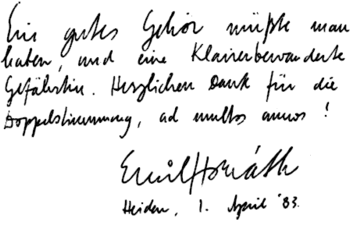 Ein gutes Gehör müßte man
haben, und eine Klavierbewanderte
Gefährtin. Herzlichen Dank für die
Doppelstimmung, ad multos annos!
Emil Horváth
Heiden, 1. April '83.